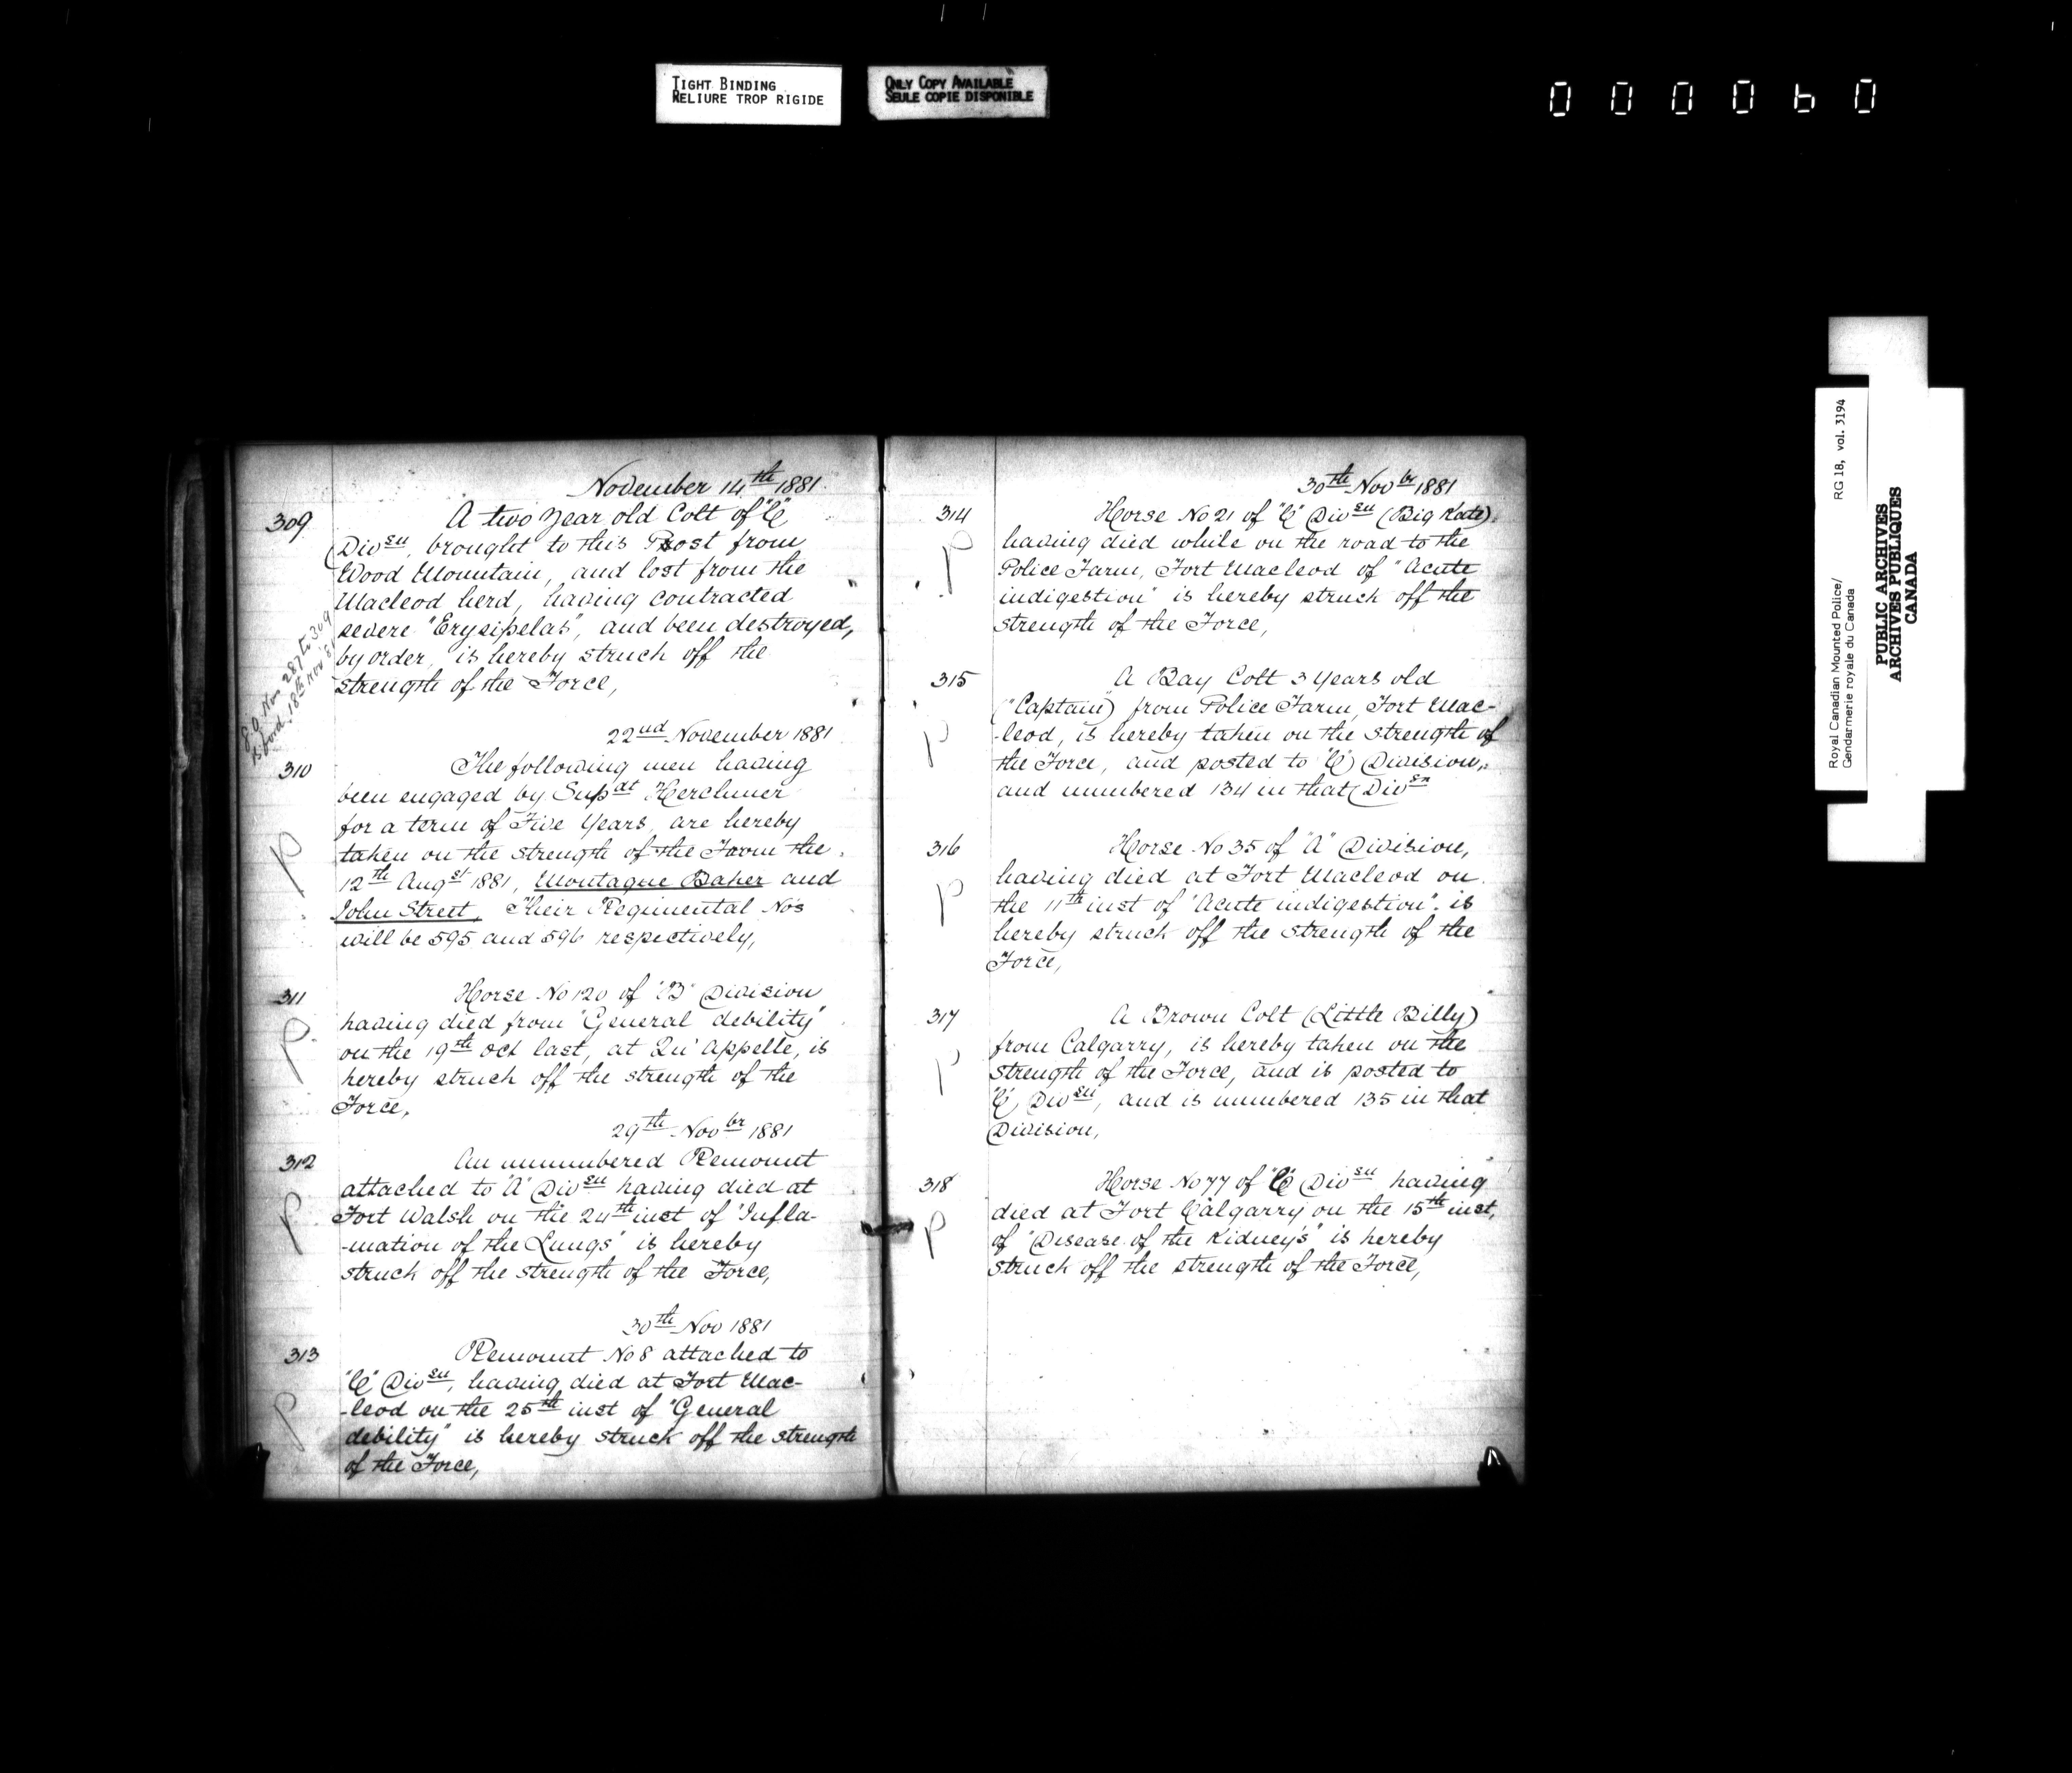 TIGHT BINDING
RELIURE TROP RIGIDE
ONLY COPY AVAILABLE
SEULE COPIE DISPONIBLE
0 0 0 0 6 0
November 14th 1881
309 A two Year old Colt of "C"
Divsn, brought to this Post from
Wood Mountain, and lost from the
Macleod herd, having contracted
severe "Erysipelas", and been destroyed,
by order, is hereby struck off the
strength of the Force,
G.O. Nos 287 to 309
18th Nov '81
22nd November 1881
310 The following men having
been engaged by Supdt Herchmer
for a term of Five Years, are hereby
taken on the strength of the Force the
12th Augst 1881, Montague Baker and
John Street, Their Regimental No's
will be 595 and 596 respectively,
P
311 Horse No 120 of "B" Division
having died from "General debility"
on the 19th Oct last, at Qu'Appelle, is
hereby struck off the strength of the
Force,
P
29th Novbr 1881
312 An unnumbered Remount
attached to "A" Divsn having died at
Fort Walsh on the 24th inst of "Infla-
-mation of the Lungs" is hereby
struck off the strength of the Force,
P
30th Nov 1881
313 Remount No 8 attached to
"C" Divsn, having died at Fort Mac-
-leod on the 25th inst of "General
debility" is hereby struck off the strength
of the Force,
P
30th Novbr 1881
314 Horse No 21 of "C" Divsn (Big Kate)
having died while on the road to the
Police Farm, Fort Macleod of "Acute
indigestion" is hereby struck off the
strength of the Force,
P
315 A Bay Colt 3 Years old
("Captain") from Police Farm, Fort Mac-
-leod, is hereby taken on the strength of
the Force, and posted to "C" Division,
and numbered 134 in that Divsn
P
316 Horse No 35 of "A" Division,
having died at Fort Macleod on
the 11th inst of "Acute indigestion". is
hereby struck off the strength of the
Force,
P
317 A Brown Colt (Little Billy)
from Calgarry, is hereby taken on the
strength of the Force, and is posted to
"C" Divsn, and is numbered 135 in that
Division,
P
318 Horse No 77 of "C" Divsn having
died at Fort Calgarry on the 15th inst,
of "Disease of the Kidney's" is hereby
struck off the strength of the Force,
P
Royal Canadian Mounted Police/
Gendarmerie royale du Canada
RG 18, vol. 3194
PUBLIC ARCHIVES
ARCHIVES PUBLIQUES
CANADA